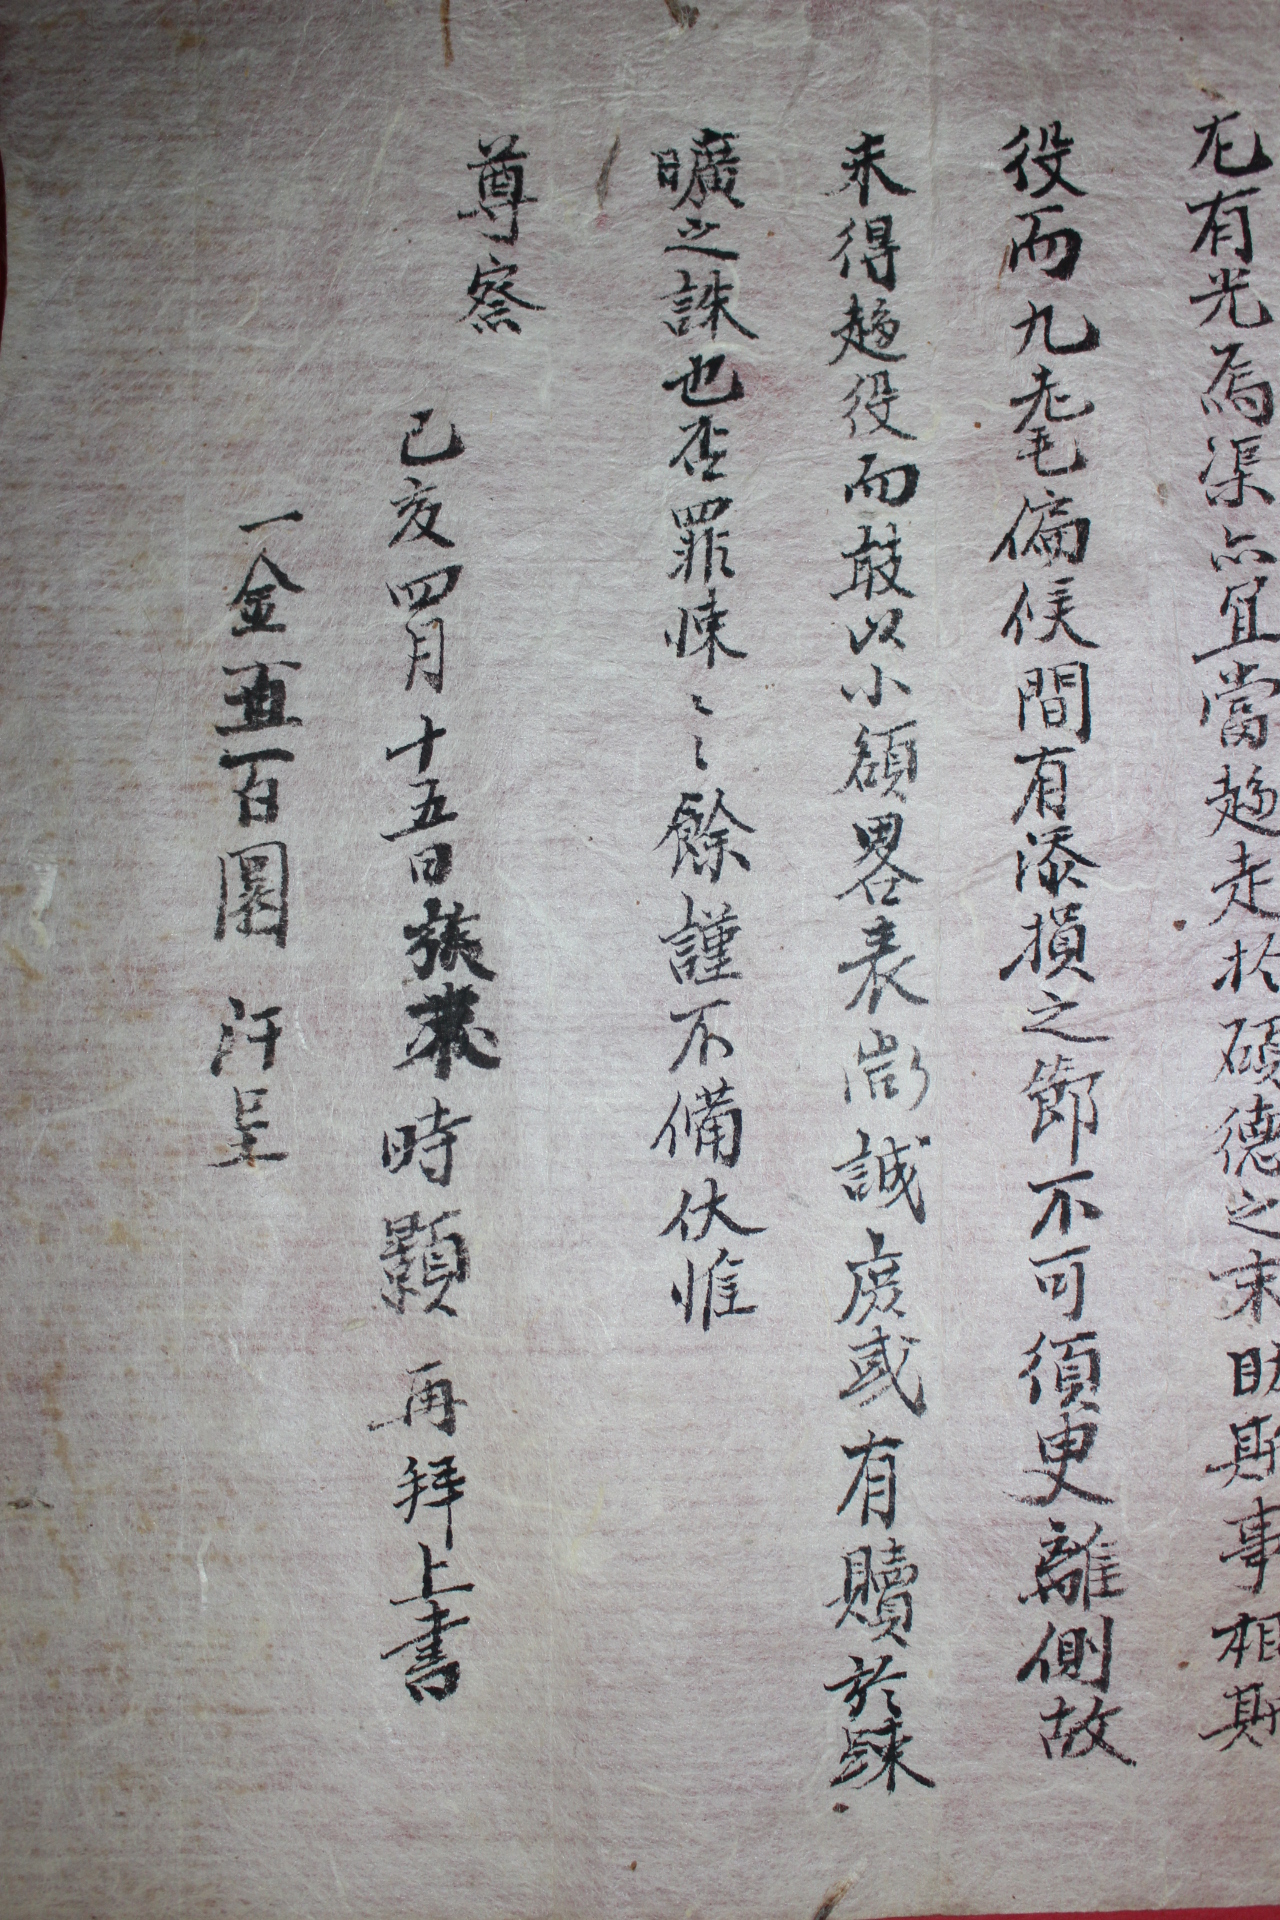 尤有光焉渠亦宜當趍走於碩德之末助斯事相斯
役而九耄偏候間有添損之節不可須臾離側故
未得趍役而敢以小額畧表微誠庶或有贖於踈
曠之誅也否罪悚〻〻餘謹不備伏惟
尊察
己亥四月十五日張來時顯再拜上書
一金五百圜 汗呈